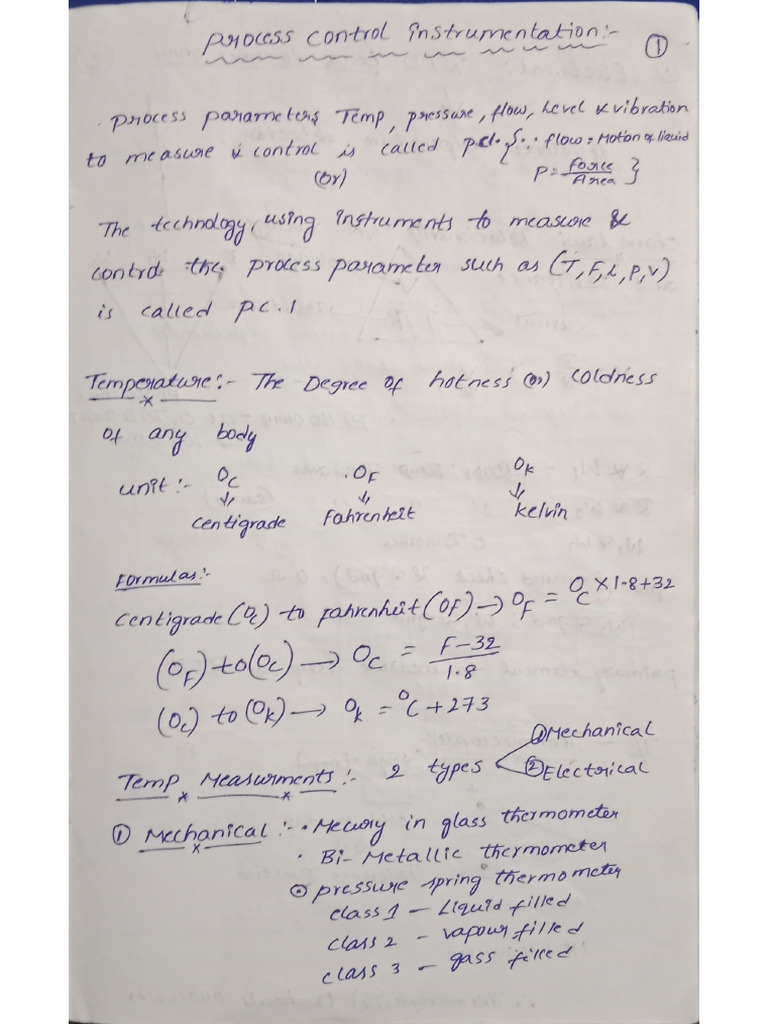 Process control instrumentation:-
①
. Process parameters Temp, pressure, flow, Level & vibration
to measure & control is called p.c.I. {∵ flow = Motion of liquid
(or)
P = Force/Area }
The technology, using instruments to measure &
control the process parameter such as (T, F, L, P, V)
is called p.c.I
Temperature:- The Degree of hotness (or) coldness
of any body
unit:- °C .°F °K
⇓ ⇓ ⇓
centigrade Fahrenheit kelvin
Formulas:-
centigrade (°C) to fahrenheit (°F) → °F = °C × 1.8 + 32
(°F) to (°C) → °C = F-32/1.8
(°C) to (°K) → °K = °C + 273
Temp Measurments:- 2 types
① Mechanical
② Electrical
① Mechanical:- • Mecury in glass thermometer
• Bi-Metallic thermometer
⊙ pressure spring thermometer
class 1 - Liquid filled
class 2 - vapour filled
class 3 - gass filled